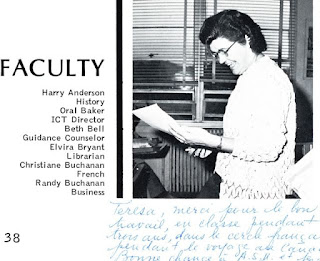 FACULTY
Harry Anderson
History
Oral Baker
ICT Director
Beth Bell
Guidance Counselor
Elvira Bryant
Librarian
Christiane Buchanan
French
Randy Buchanan
Business
38
Teresa, merci pour le bon
travail, en classe pendant
trois ans, dans le cercle frança
pendant le voyage au Cana
Bonne chance à A.S.U. et